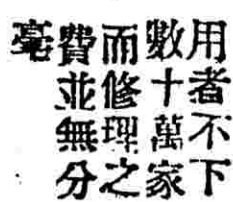 用者不下
數十萬家
而修理之
費並無分
毫